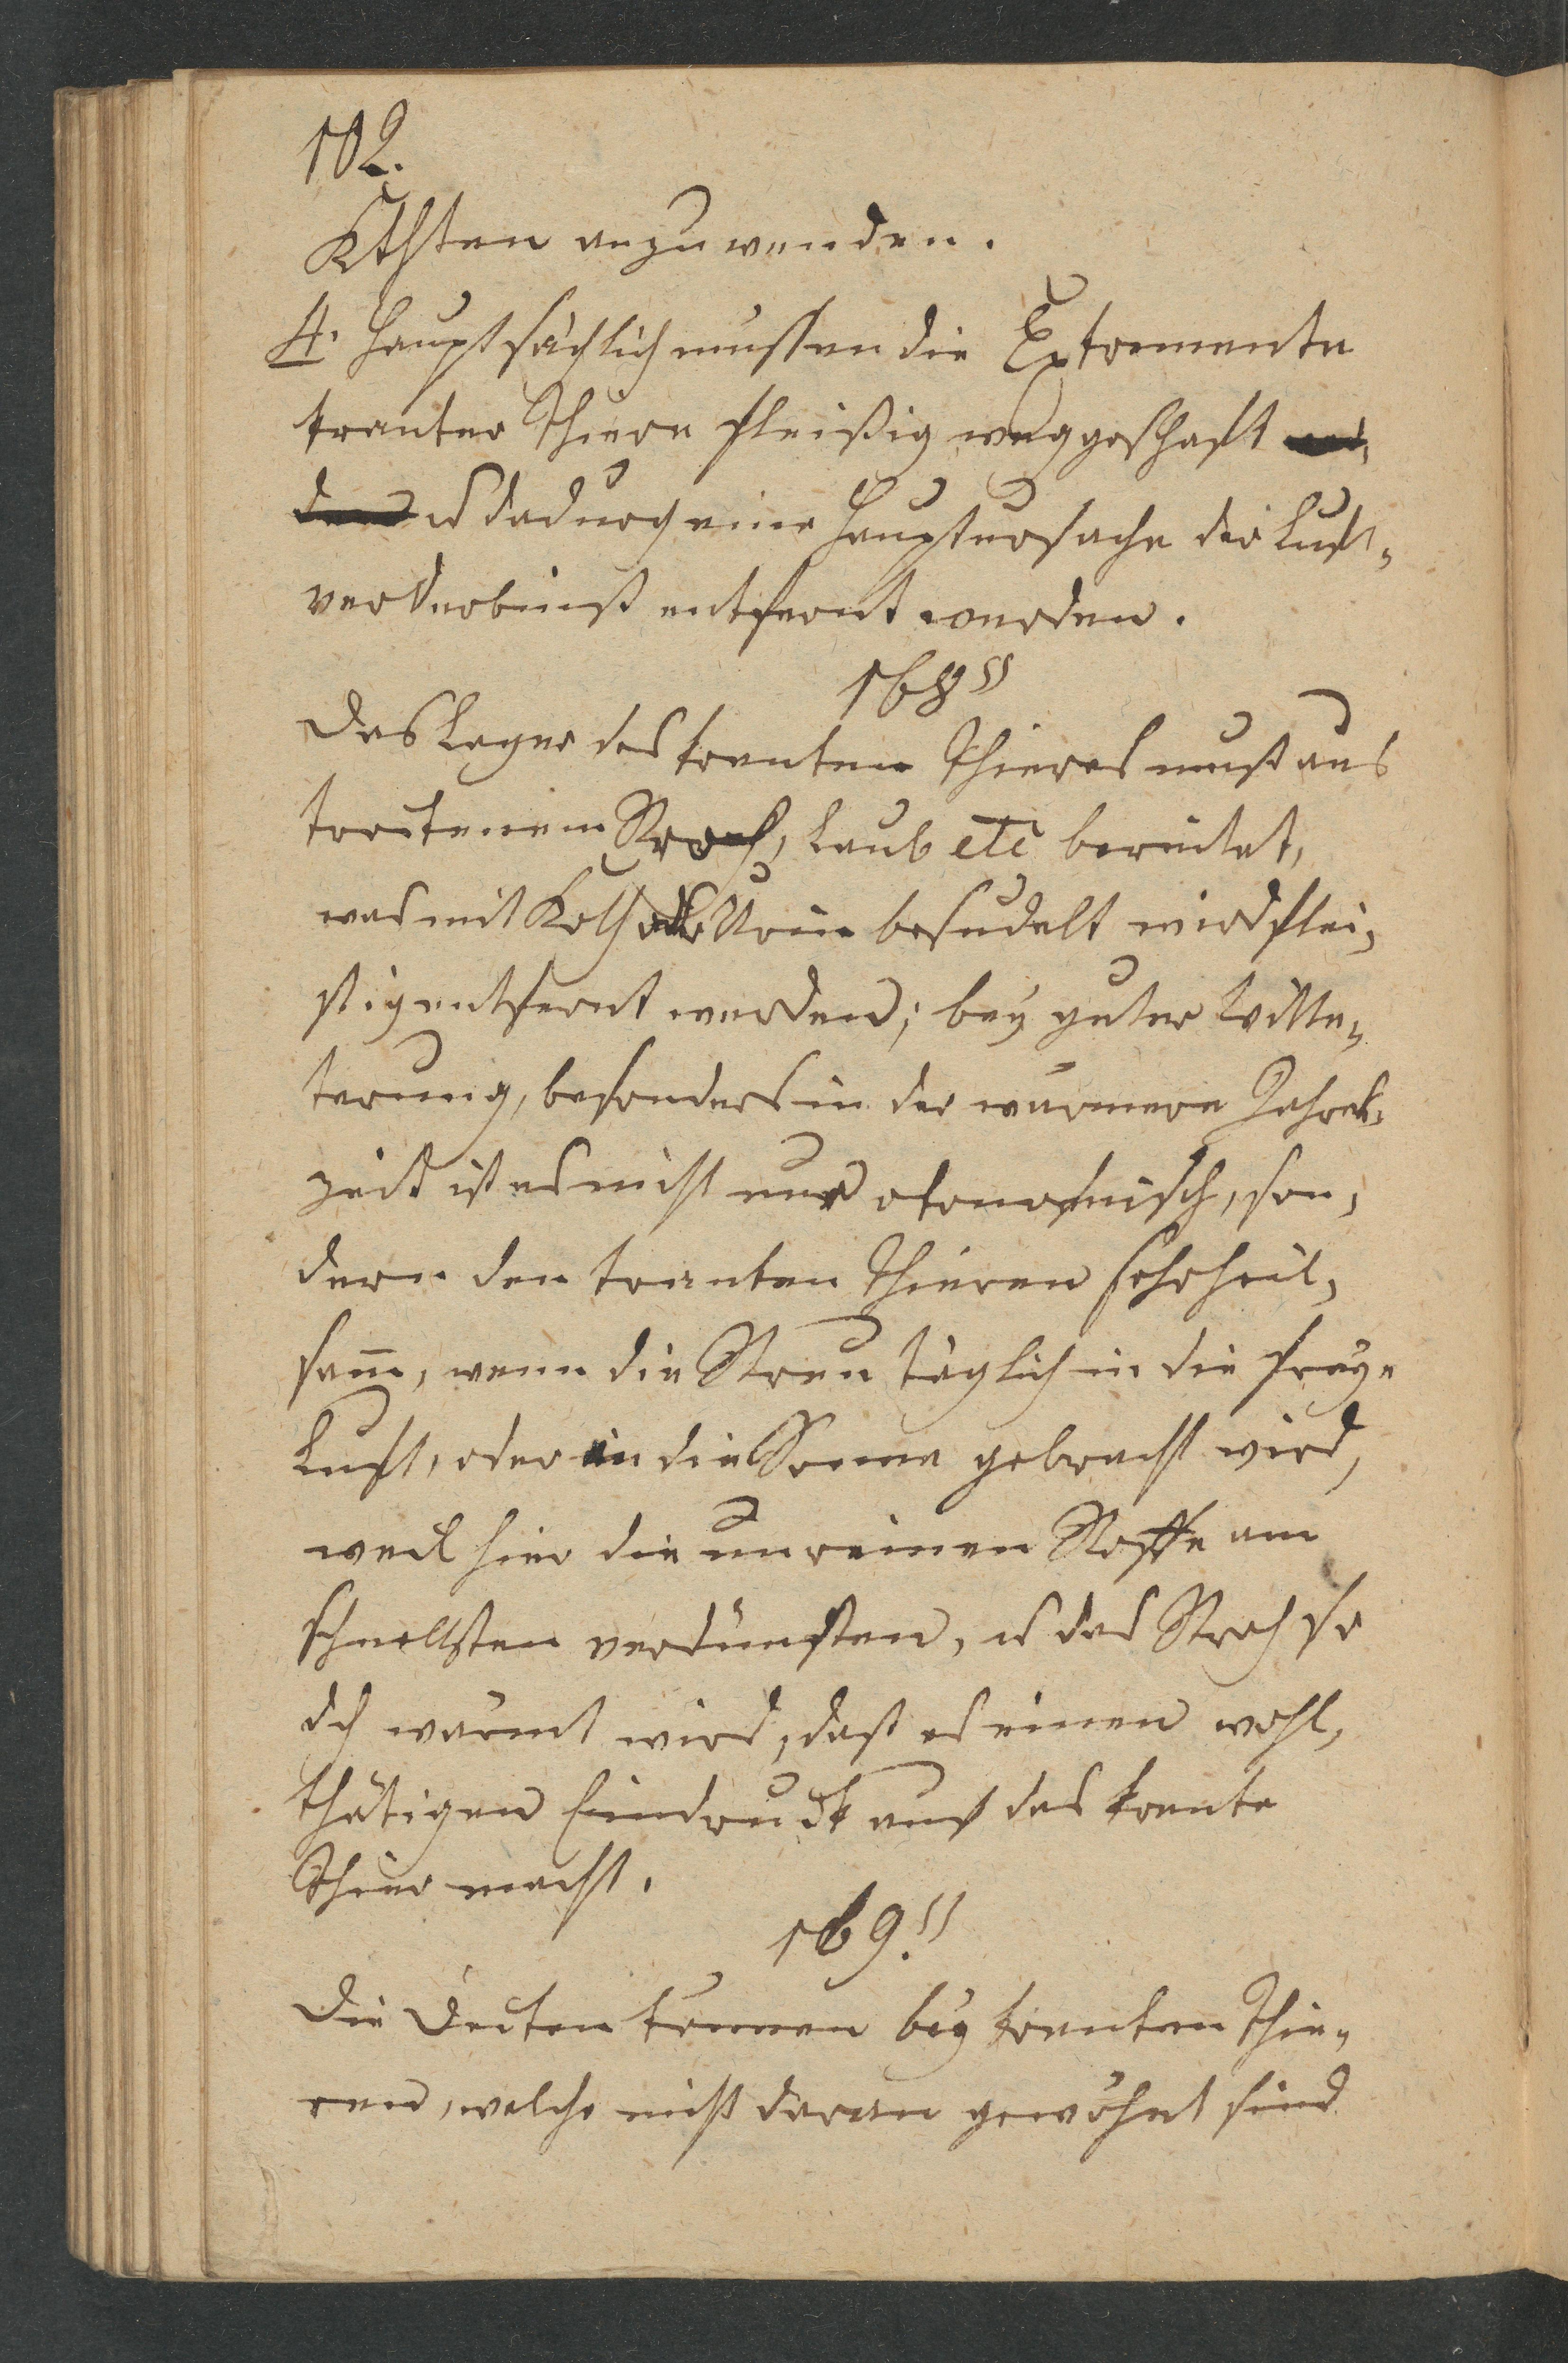 102.
Kosten anzuwenden.
4. Hauptsächlich mussen die Extremente
kranker Thiere fleißig weggeschaft
u dadurch eine Hauptursache der Luft-
verderbniß entfernt werden.
168§
Das Lager des kranken Thieres muß aus
trockenem Stroh, Laub etc bereitet,
was mit Koth oder Urin besudelt wird flei-
ßig entfernt werden; bey guter Witte-
terung, besonders in der wärmern Jahres-
zeit ist es nicht nur ökonomisch, son-
dern den kranken Thieren sehr heil-
sam̄, wenn die Streu täglich in die freye
Luft, oder in die Sonne gebracht wird,
weil hier die unreinen Stoffe am
schnellsten verdünsten, u das Stroh so
dch wärmt wird, daß es einen wohl-
thätigen Eindruck auf das kranke
Thier macht.
169.§
Die Decken können bey kranken Thie-
ren, welche nicht daran gewöhnt sind